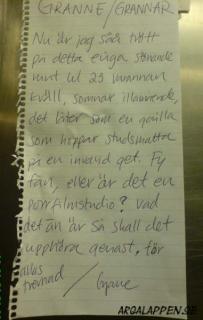 GRANNE/GRANNAR
Nu är jag såå trött
på detta eviga störande
runt kl 23 varannan
kväll, somnar illamående,
det låter som en gorilla
som hoppar studsmatta
på en invalid get. Fy
fan, eller är det en
porrfilmstudio? Vad
det än är så skall det
upphöra genast, för
allas
trevnad /Granne
ARGALAPPEN.SE